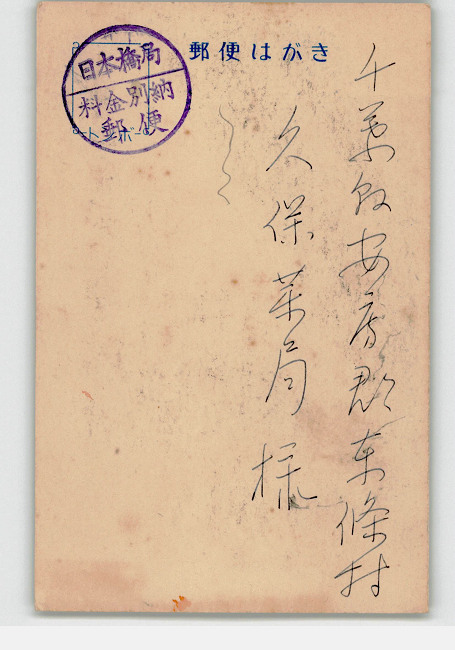 郵便はがき
日本橋局
料金別納
郵便
千葉縣安房郡東條村
久保薬局 様